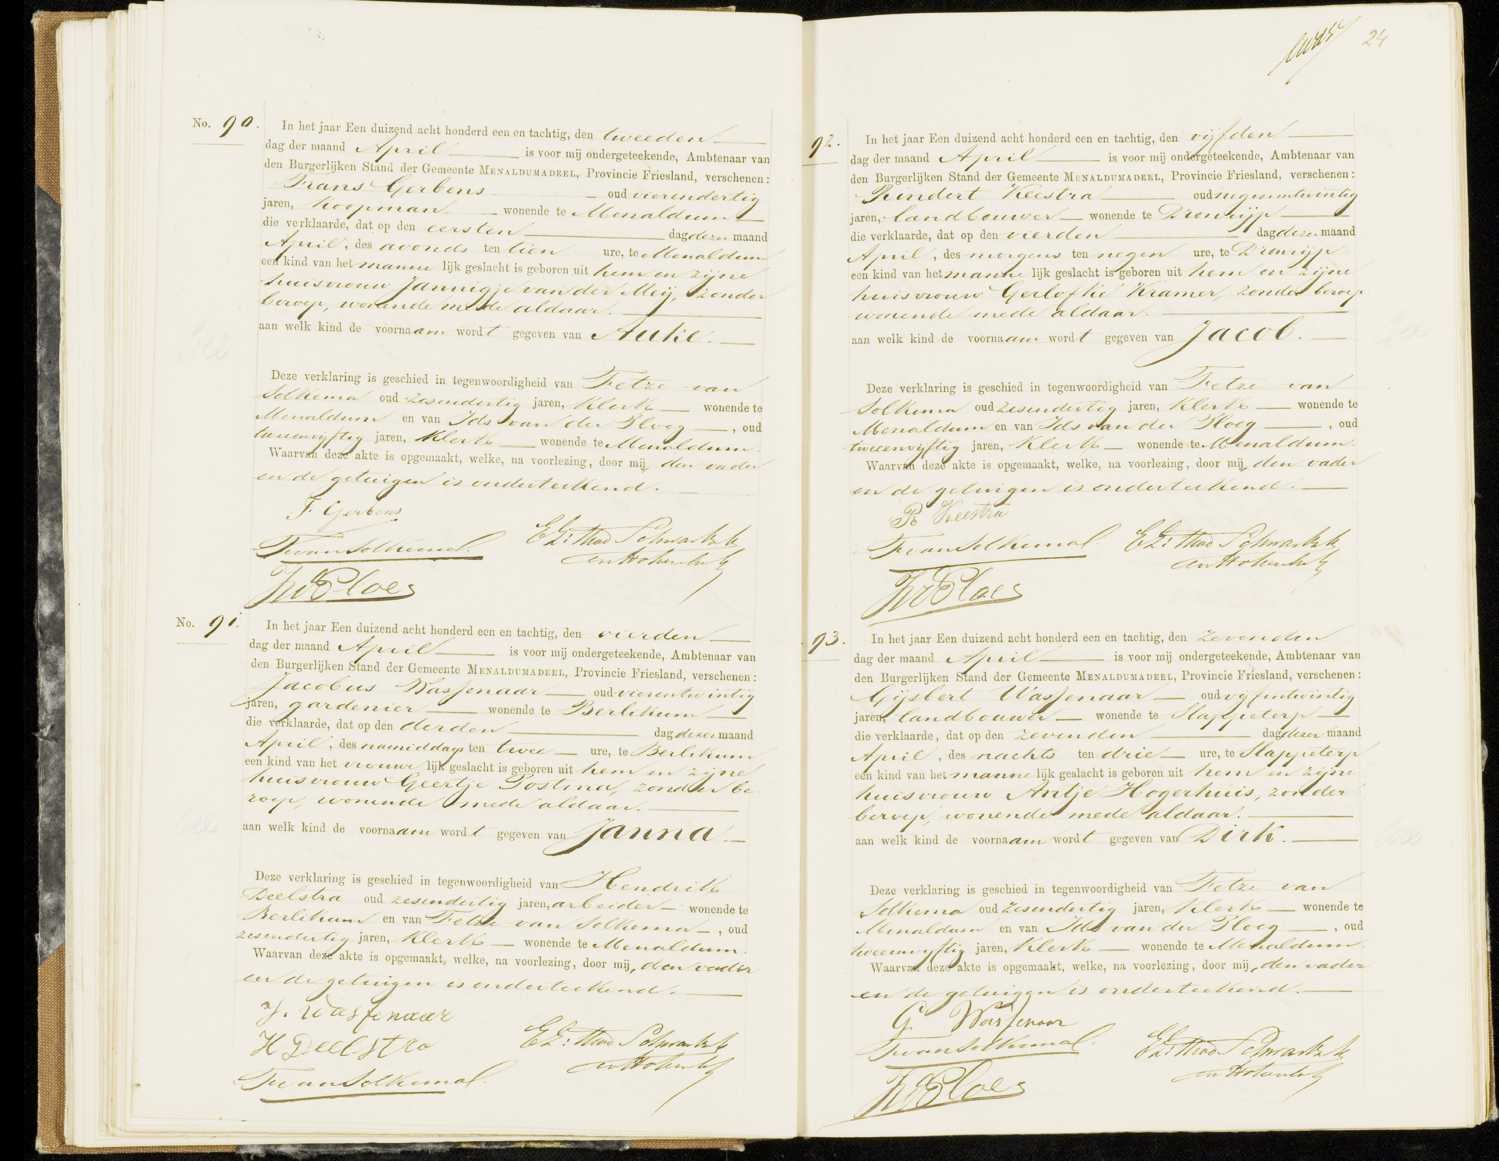 24
No. 90.
In het jaar Een duizend acht honderd een en tachtig, den tweeden
dag der maand April is voor mij ondergeteekende, Ambtenaar van
den Burgerlijken Stand der Gemeente MENALDUMADEEL, Provincie Friesland, verschenen:
Frans Gerbens oud vierendertig
jaren, Koopman wonende te Menaldum
die verklaarde, dat op den eersten dag dezer maand
April, des avonds ten tien ure, te Menaldum
een kind van het mannelijk geslacht is geboren uit hem en zijne
huisvrouw Jannigje van der Meij, zonder
beroep, wonende mede aldaar.
aan welk kind de voornaam wordt gegeven van Auke.
Deze verklaring is geschied in tegenwoordigheid van Fetze van
Solkema oud zesendertig jaren, Klerk wonende te
Menaldum en van Ids van der Ploeg, oud
tweeenvyftig jaren, Klerk wonende te Menaldum.
Waarvan deze akte is opgemaakt, welke, na voorlezing, door mij, den vader
en de getuigen is onderteekend.
F. Gerbens
F van Solkema
No. 91.
In het jaar Een duizend acht honderd een en tachtig, den vierden
dag der maand April is voor mij ondergeteekende, Ambtenaar van
den Burgerlijken Stand der Gemeente MENALDUMADEEL, Provincie Friesland, verschenen:
Jacobus Wassenaar oud vierentwintig
jaren, gardenier wonende te Berlikum
die verklaarde, dat op den derden dag dezer maand
April, des namiddags ten twee ure, te Berlikum
een kind van het vrouwelijk geslacht is geboren uit hem en zijne
huisvrouw Geertje Postma, zonder be
roep, wonende mede aldaar.
aan welk kind de voornaam wordt gegeven van Janna.
Deze verklaring is geschied in tegenwoordigheid van Hendrik
Deelstra oud zesendertig jaren, arbeider wonende te
Berlikum en van Fetze van Solkema, oud
zesendertig jaren, Klerk wonende te Menaldum.
Waarvan deze akte is opgemaakt, welke, na voorlezing, door mij, den vader
en de getuigen is onderteekend.
J. Wassenaar
H Deelstra
F van Solkema
92.
In het jaar Een duizend acht honderd een en tachtig, den vijfden
dag der maand April is voor mij ondergeteekende, Ambtenaar van
den Burgerlijken Stand der Gemeente MENALDUMADEEL, Provincie Friesland, verschenen:
Rindert Keestra oud negenentwintig
jaren, landbouwer wonende te Dronrijp
die verklaarde, dat op den vierden dag dezer maand
April, des morgens ten negen ure, te Dronrijp
een kind van het mannelijk geslacht is geboren uit hem en zijne
huisvrouw Gerloftie Kramer, zonder beroep
wonende mede aldaar.
aan welk kind de voornaam wordt gegeven van Jacob.
Deze verklaring is geschied in tegenwoordigheid van Fetze van
Solkema oud zesendertig jaren, Klerk wonende te
Menaldum en van Ids van der Ploeg, oud
tweeenvyftig jaren, Klerk wonende te Menaldum.
Waarvan deze akte is opgemaakt, welke, na voorlezing, door mij, den vader
en de getuigen is onderteekend.
R Keestra
F van Solkema
93.
In het jaar Een duizend acht honderd een en tachtig, den zevenden
dag der maand April is voor mij ondergeteekende, Ambtenaar van
den Burgerlijken Stand der Gemeente MENALDUMADEEL, Provincie Friesland, verschenen:
Gijsbert Wassenaar oud vyfentwintig
jaren, landbouwer wonende te Slappeterp
die verklaarde, dat op den zevenden dag dezer maand
April, des nachts ten drie ure, te Slappeterp
een kind van het mannelijk geslacht is geboren uit hem en zijne
huisvrouw Antje Hogerhuis, zonder
beroep, wonende mede aldaar.
aan welk kind de voornaam wordt gegeven van Dirk.
Deze verklaring is geschied in tegenwoordigheid van Fetze van
Solkema oud zesendertig jaren, Klerk wonende te
Menaldum en van Ids van der Ploeg, oud
tweeenvyftig jaren, Klerk wonende te Menaldum.
Waarvan deze akte is opgemaakt, welke, na voorlezing, door mij, den vader
en de getuigen is onderteekend.
G. Wassenaar
F van Solkema